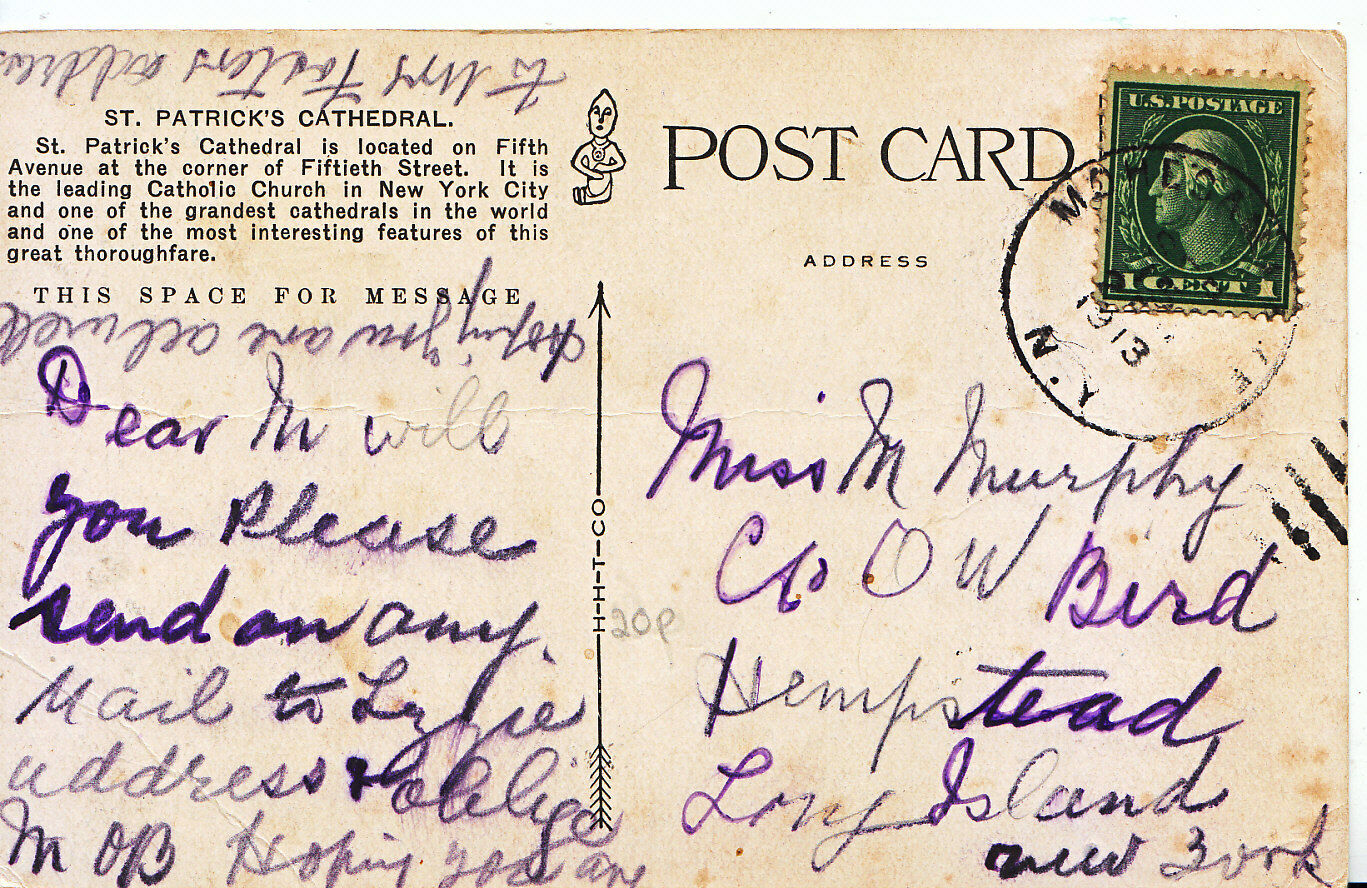 to Mrs address
ST. PATRICK'S CATHEDRAL.
St. Patrick's Cathedral is located on Fifth
Avenue at the corner of Fiftieth Street. It is
the leading Catholic Church in New York City
and one of the grandest cathedrals in the world
and one of the most interesting features of this
great thoroughfare.
THIS SPACE FOR MESSAGE
Hoping you are all well
Dear M will
you Please
send on any
Mail to Lizzie
address & oblige
M OB Hoping you are
H-H-T-CO
20p
POST CARD
ADDRESS
U.S. POSTAGE
1 CENT 1
MOHEGAN
1913
N.Y.
Miss M Murphy
C/o O W Bird
Hempstead
Long Island
new York